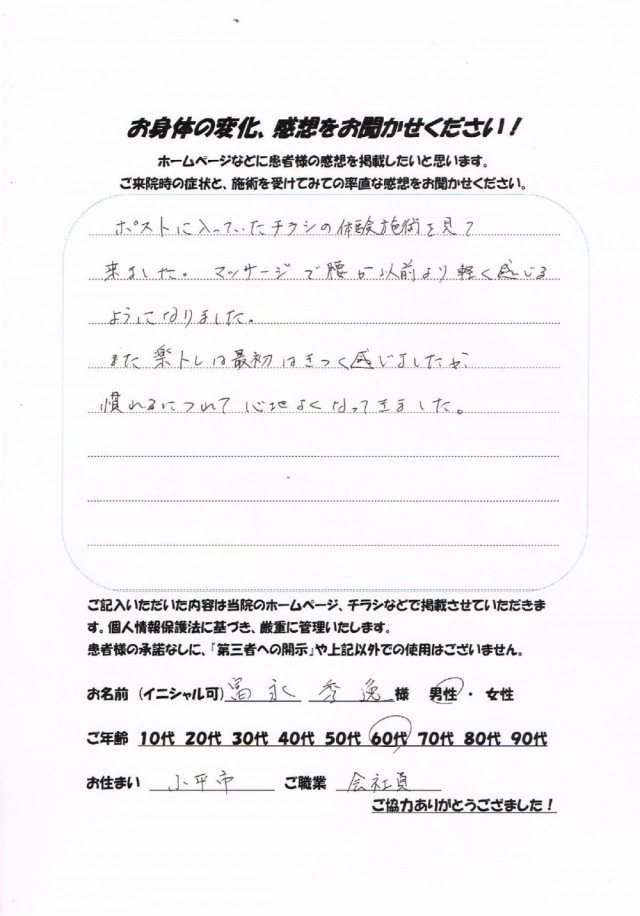 お身体の変化、感想をお聞かせください！
ホームページなどに患者様の感想を掲載したいと思います。
ご来院時の症状と、施術を受けてみての率直な感想をお聞かせください。
ポストに入っていたチラシの体験施術を見て
来ました。 マッサージで腰が以前より軽く感じる
ようになりました。
また楽トレは最初はきつく感じましたが、
慣れるにつれて心地よくなってきました。
ご記入いただいた内容は当院のホームページ、チラシなどで掲載させていただきま
す。個人情報保護法に基づき、厳重に管理いたします。
患者様の承諾なしに、「第三者への開示」や上記以外での使用はございません。
お名前 （イニシャル可） 冨永 秀逸 様 男性 ・ 女性
ご年齢 10代 20代 30代 40代 50代 60代 70代 80代 90代
お住まい 小平市 ご職業 会社員
ご協力ありがとうござました！